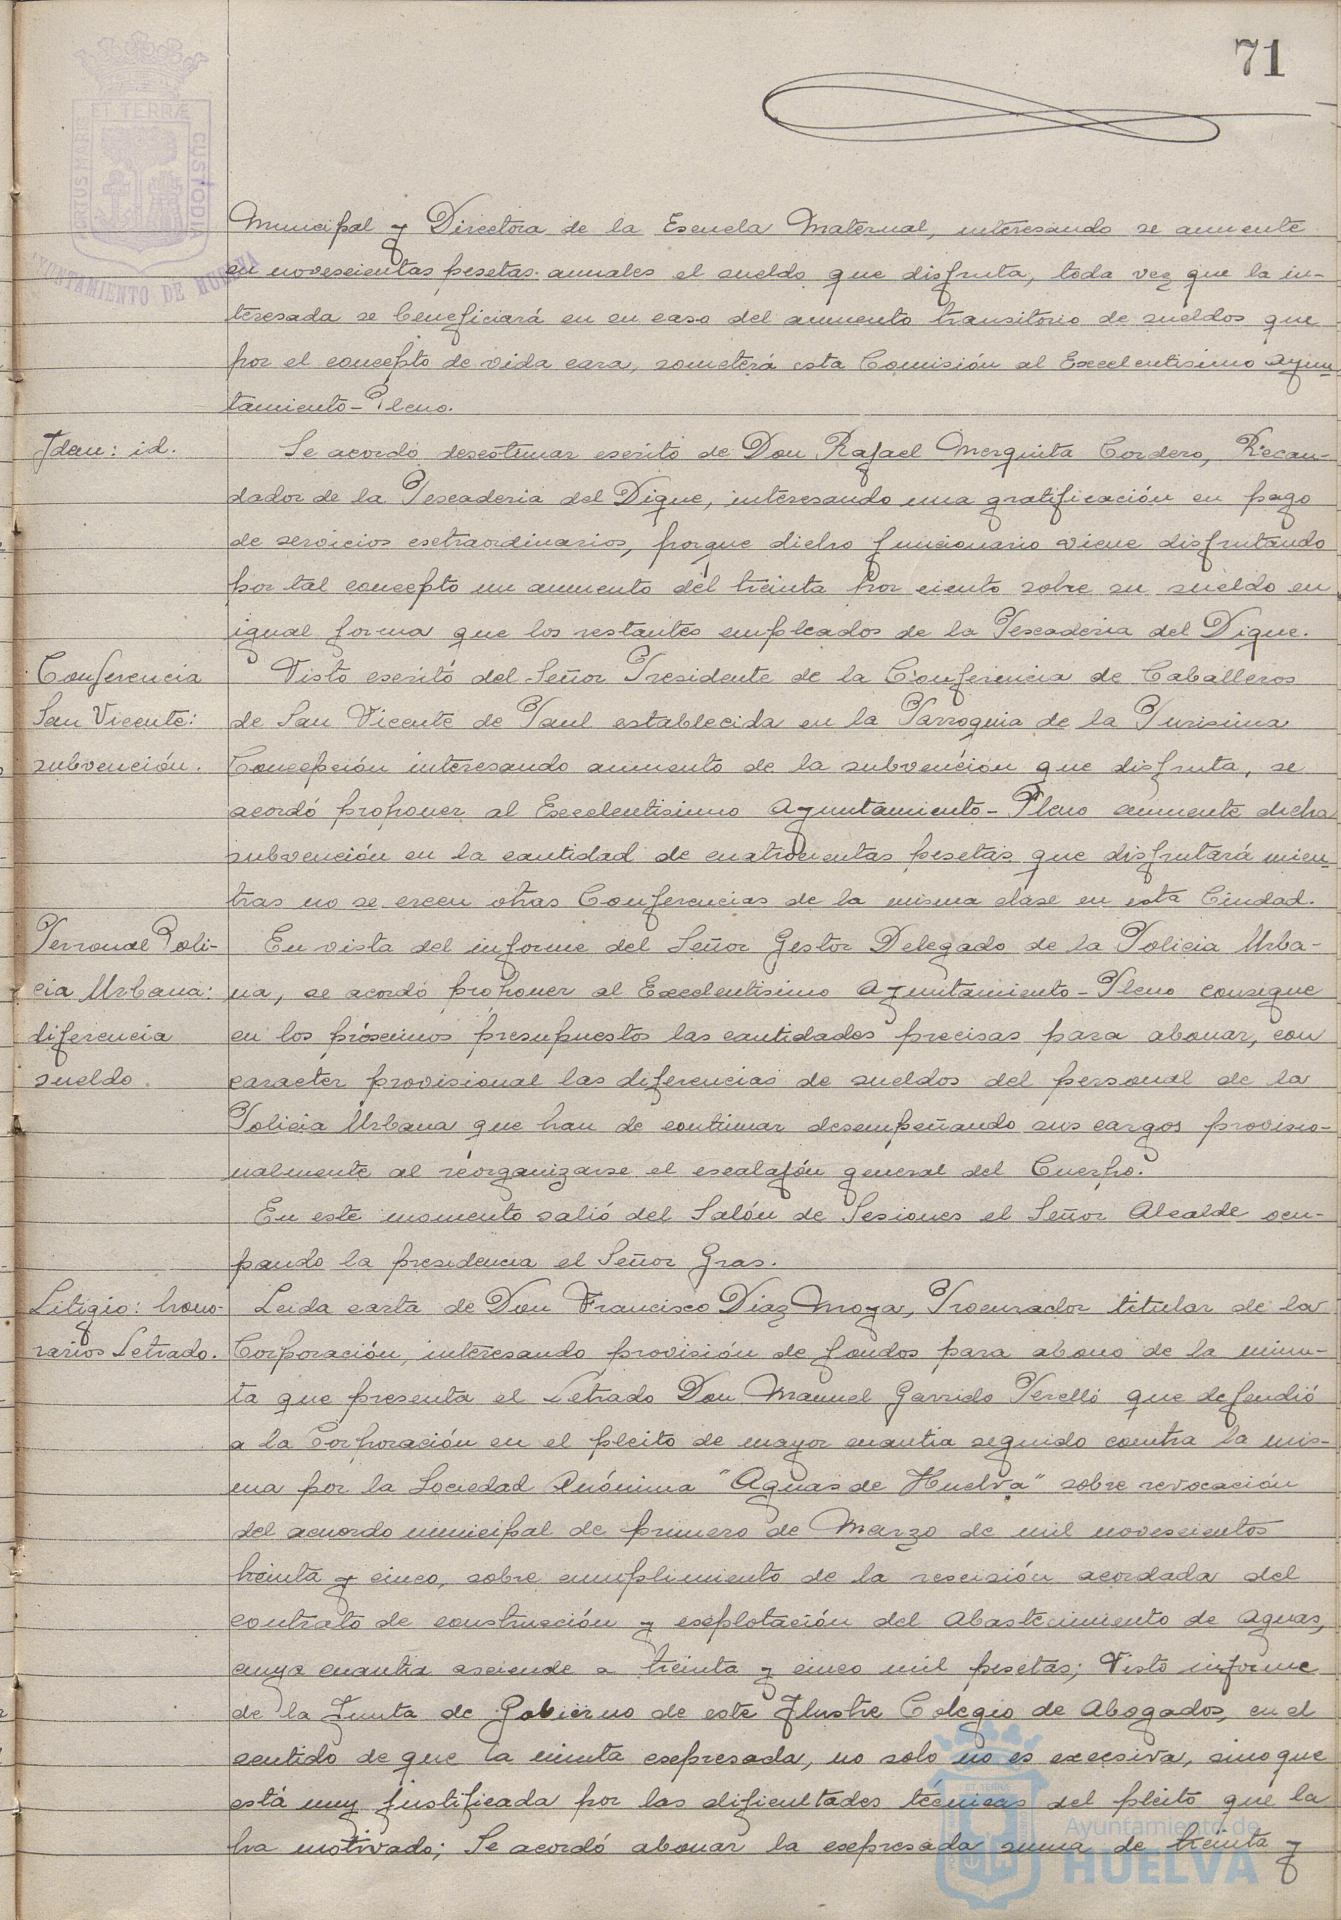 71
PORTUS MARIS ET TERRÆ CUSTODIA
AYUNTAMIENTO DE HUELVA
Municipal y Directora de la Escuela Maternal, interesando se aumente
en novescientas pesetas anuales el sueldo que disfruta, toda vez que la in-
teresada se beneficiará en su caso del aumento transitorio de sueldos que
por el concepto de vida cara, someterá esta Comisión al Excelentisimo Ayun-
tamiento-Pleno.
Idem: id.
Se acordó desestimar escrito de Don Rafael Mezquita Cordero, Recau-
dador de la Pescaderia del Dique, interesando una gratificación en pago
de servicios extraordinarios, porque dicho funcionario viene disfrutando
por tal concepto un aumento del treinta por ciento sobre su sueldo en
igual forma que los restantes empleados de la Pescaderia del Dique.
Conferencia
San Vicente:
subvención.
Visto escrito del Señor Presidente de la Conferencia de Caballeros
de San Vicente de Paul establecida en la Parroquia de la Purisima
Concepción interesando aumento de la subvención que disfruta, se
acordó proponer al Excelentisimo Ayuntamiento-Pleno aumente dicha
subvención en la cantidad de cuatrocientas pesetas que disfrutará mien-
tras no se creen otras Conferencias de la misma clase en esta Ciudad.
Personal Poli-
cia Urbana:
diferencia
sueldo.
En vista del informe del Señor Gestor Delegado de la Policia Urba-
na, se acordó proponer al Excelentisimo Ayuntamiento-Pleno consigne
en los próximos presupuestos las cantidades precisas para abonar, con
caracter provisional las diferencias de sueldos del personal de la
Policia Urbana que han de continuar desempeñando sus cargos provisio-
nalmente al reorganizarse el escalafón general del Cuerpo.
En este momento salió del Salón de Sesiones el Señor Alcalde ocu-
pando la presidencia el Señor Gras.
Litigio: hono-
rarios Letrado.
Leida carta de Don Francisco Diaz Moya, Procurador titular de la
Corporación, interesando provisión de fondos para abono de la minu-
ta que presenta el Letrado Don Manuel Garrido Perelló que defendió
a la Corporación en el pleito de mayor cuantia seguido contra la mis-
ma por la Sociedad Anónima "Aguas de Huelva" sobre revocación
del acuerdo municipal de primero de Marzo de mil novescientos
treinta y cinco, sobre cumplimiento de la rescisión acordada del
contrato de construcción y explotación del Abastecimiento de Aguas,
cuya cuantia asciende a treinta y cinco mil pesetas; Visto informe
de la Junta de Gobierno de este Ilustre Colegio de Abogados, en el
sentido de que la minuta expresada, no solo no es excesiva, sino que
está muy justificada por las dificultades técnicas del pleito que la
ha motivado; Se acordó abonar la expresada suma de treinta y
Ayuntamiento de
HUELVA